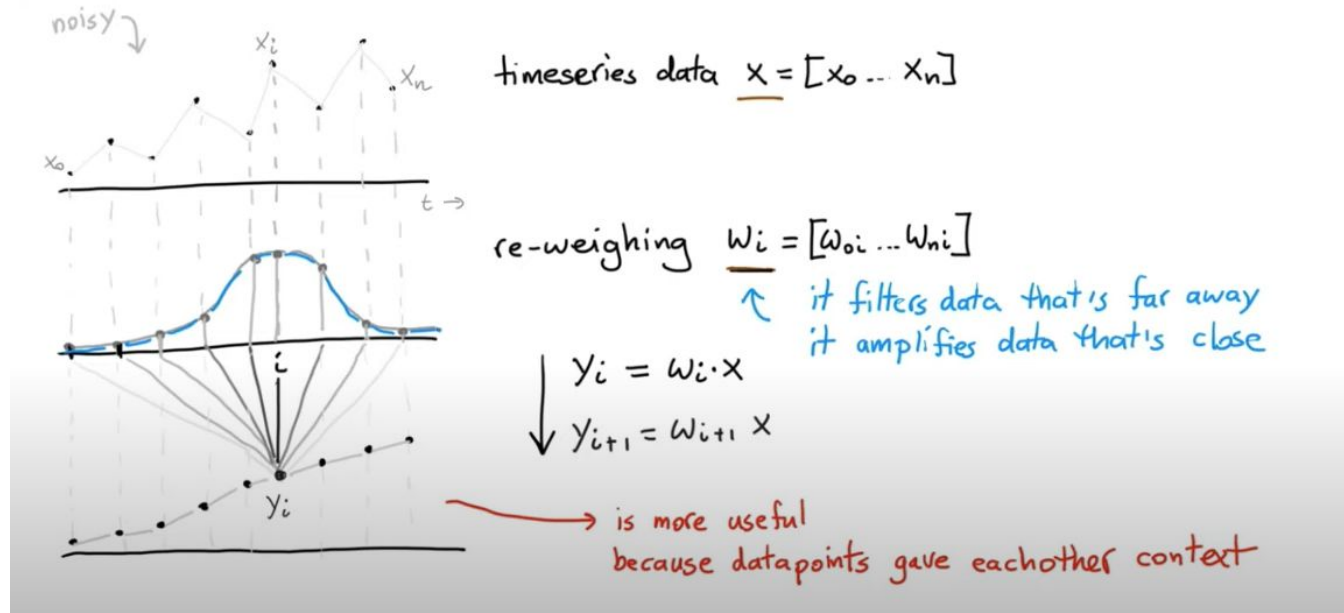 noisy
xi
xn
x0
t →
timeseries data x = [x0 ... xn]
re-weighing wi = [w0i ... wni]
it filters data that's far away
it amplifies data that's close
i
yi = wi · x
yi+1 = wi+1 x
yi
→ is more useful
because datapoints gave eachother context